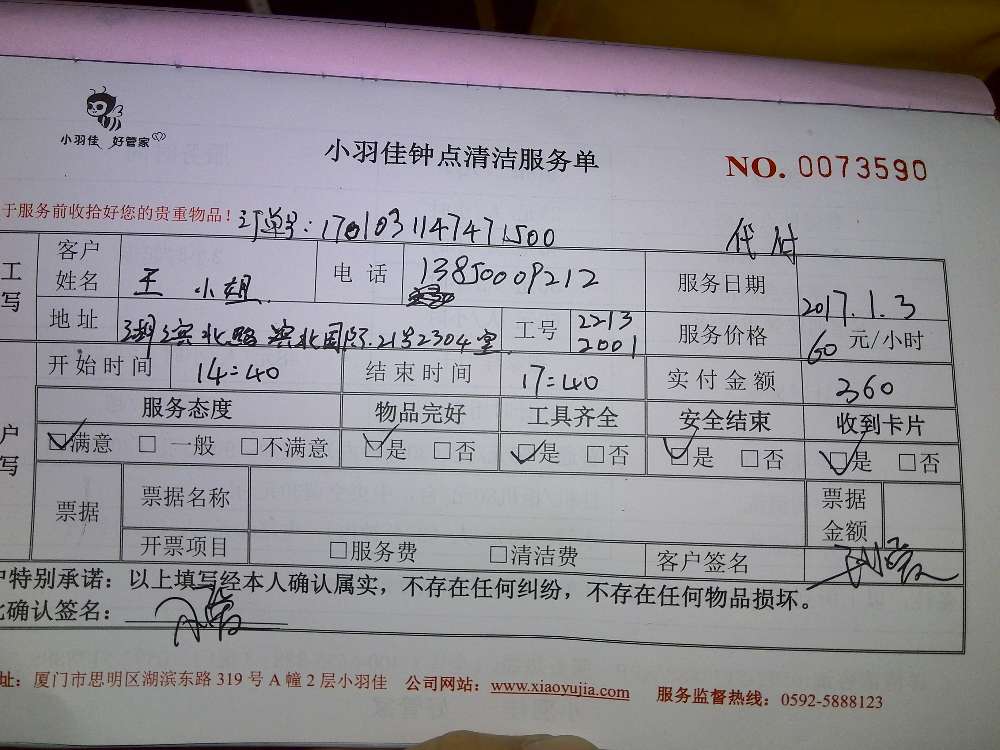 小羽佳 好管家
小羽佳钟点清洁服务单
NO. 0073590
于服务前收拾好您的贵重物品！
订单号:170103114747500
代付
工
写
客户
姓名
王 小姐
电 话
13850009212
服务日期
2017.1.3
地 址
湖滨北路滨北国际.21号2304室
工号
2213
2001
服务价格
60 元/小时
开 始 时 间
14:40
结 束 时 间
17:40
实 付 金 额
360
服务态度 物品完好 工具齐全 安全结束 收到卡片
户
写
☑满意 □ 一般 □不满意 ☑是 □否 ☑是 □否 ☑是 □否 ☑是 □否
票据
票据名称
票据
金额
开票项目 □服务费 □清洁费 客户签名
户特别承诺：以上填写经本人确认属实，不存在任何纠纷，不存在任何物品损坏。
此确认签名：
址：厦门市思明区湖滨东路 319 号 A 幢 2 层小羽佳 公司网站：www.xiaoyujia.com 服务监督热线：0592-5888123